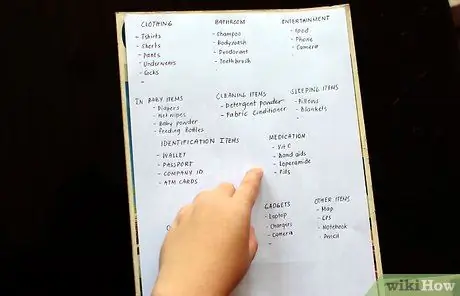 CLOTHING
- Tshirts
- Shorts
- Pants
- Underwears
- Socks
-
BATHROOM
- Shampoo
- Bodywash
- Deodorant
- Toothbrush
ENTERTAINMENT
- ipod
- Phone
- Camera
-
BABY ITEMS
- Diapers
- Wet wipes
- Baby powder
- Feeding Bottles
CLEANING ITEMS
- Detergent powder
- Fabric Conditioner
SLEEPING ITEMS
- Pillows
- Blankets
IDENTIFICATION ITEMS
- WALLET
- PASSPORT
- COMPANY ID
- ATM CARDS
MEDICATION
- Vit C
- Band aids
- Loperamide
- Pills
GADGETS
- Laptop
- Chargers
- Camera
-
OTHER ITEMS
- Map
- GPS
- Notebook
- Pencil
wikiHow